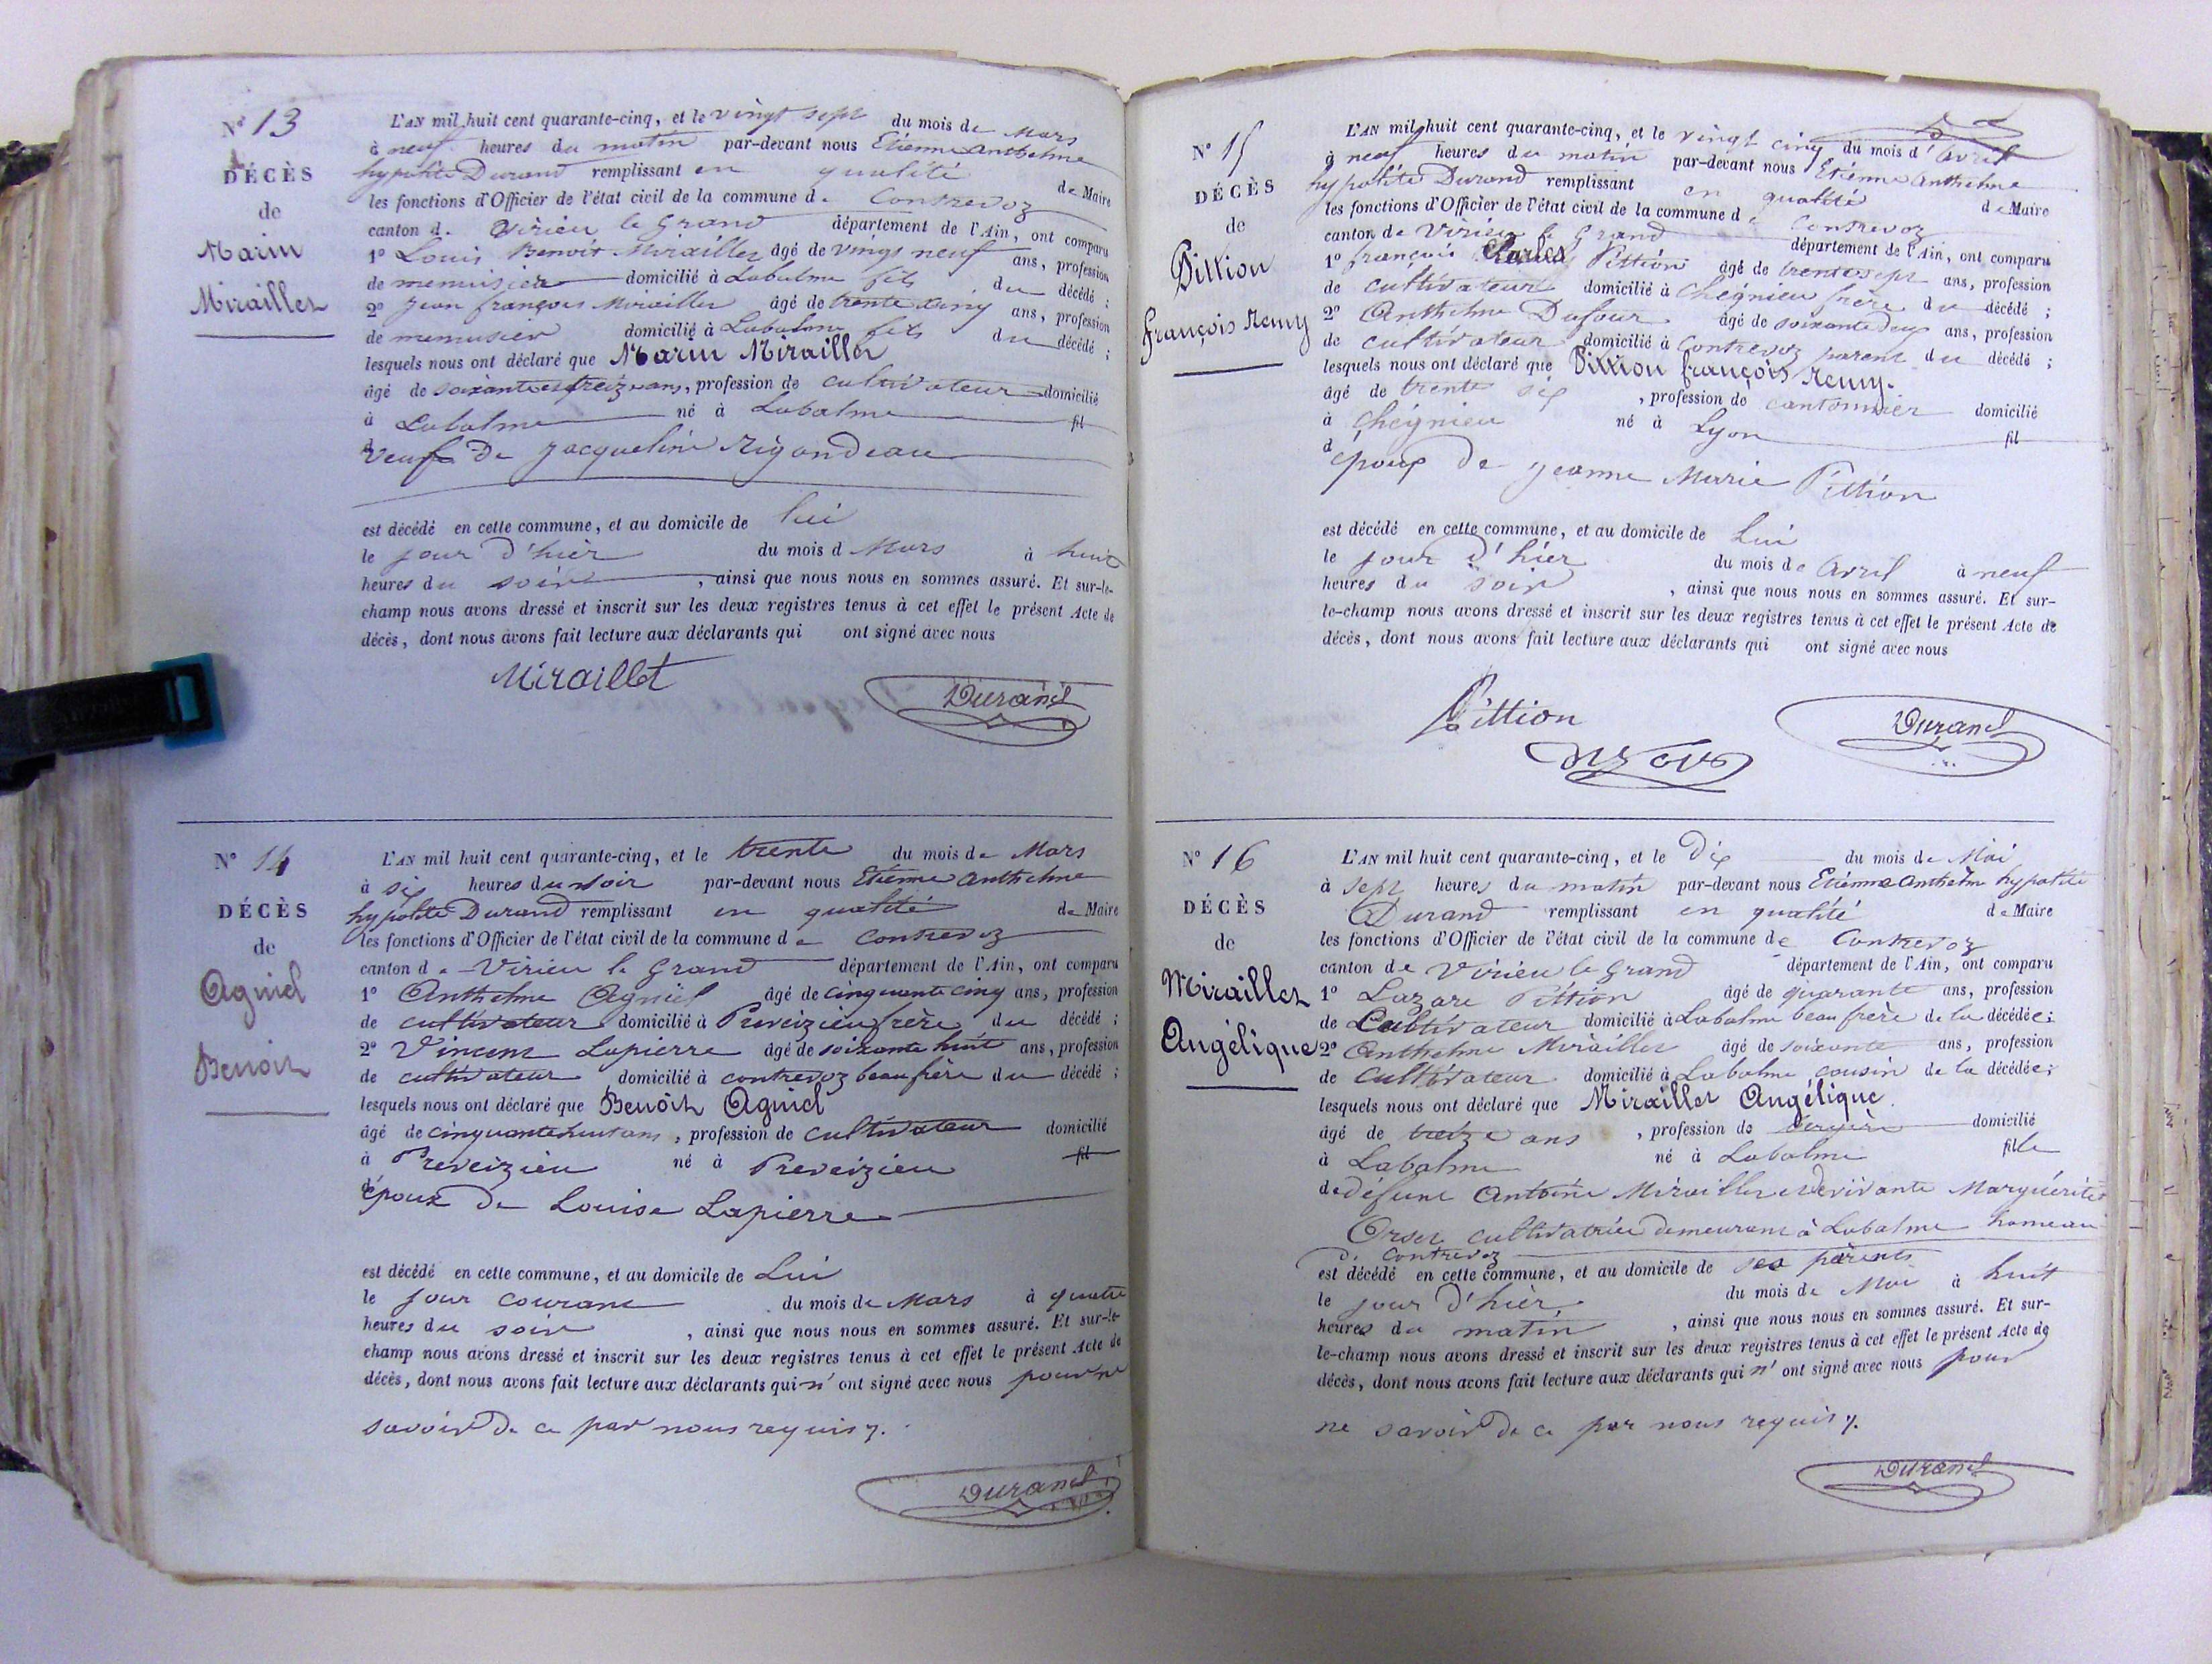 N° 13
DÉCÈS
de
Marin
Miraillet
L'AN mil huit cent quarante-cinq, et le vingt sept du mois de Mars
à neuf heures du matin par-devant nous Etienne Anthelme
hypolite Durand remplissant en qualité de Maire
les fonctions d'Officier de l'état civil de la commune de Contrevoz
canton de Virieu le Grand département de l'Ain, ont comparu
1° Louis Benoit Miraillet âgé de vingt neuf ans, profession
de menuisier domicilié à Labalme fils du décédé ;
2° Jean françois Miraillet âgé de trente cinq ans, profession
de menuisier domicilié à Labalme fils du décédé ;
lesquels nous ont déclaré que Marin Miraillet
âgé de soixante et treize ans, profession de cultivateur domicilié
à Labalme né à Labalme fil
d
veuf de Jacqueline Rigondeau
est décédé en cette commune, et au domicile de lui
le jour d'hièr du mois d Mars à huit
heures du soir , ainsi que nous nous en sommes assuré. Et sur-le-
champ nous avons dressé et inscrit sur les deux registres tenus à cet effet le présent Acte de
décès, dont nous avons fait lecture aux déclarants qui ont signé avec nous
Miraillet Durand
N° 14
DÉCÈS
de
Agniel
Benoit
L'AN mil huit cent quarante-cinq, et le trente du mois de Mars
à six heures du soir par-devant nous Etienne Anthelme
hypolite Durand remplissant en qualité de Maire
les fonctions d'Officier de l'état civil de la commune de Contrevoz
canton de Virieu le Grand département de l'Ain, ont comparu
1° Anthelme Agniel âgé de cinquante cinq ans, profession
de cultivateur domicilié à Preveizieu frère du décédé ;
2° Vincent Lapierre âgé de soixante huit ans, profession
de cultivateur domicilié à contrevoz beau frère du décédé ;
lesquels nous ont déclaré que Benoit Agniel
âgé de cinquante huit ans , profession de cultivateur domicilié
à Preveizieu né à Preveizieu fil
d
époux de Louise Lapierre
est décédé en cette commune, et au domicile de Lui
le jour courant du mois de Mars à quatre
heures du soir , ainsi que nous nous en sommes assuré. Et sur-le-
champ nous avons dressé et inscrit sur les deux registres tenus à cet effet le présent Acte de
décès, dont nous avons fait lecture aux déclarants qui n' ont signé avec nous pour ne
savoir de ce par nous requis y.
Durand
N° 15
DÉCÈS
de
Pittion
françois Remy
L'AN mil huit cent quarante-cinq, et le vingt cinq du mois d'avril
à neuf heures du matin par-devant nous Etienne Anthelme
hypolite Durand remplissant en qualité de Maire
les fonctions d'Officier de l'état civil de la commune de Contrevoz
canton de Virieu le Grand département de l'Ain, ont comparu
1° françois Charles Pittion âgé de trente sept ans, profession
de cultivateur domicilié à Cheignieu frère du décédé ;
2° Anthelme Dufour âgé de soixante deux ans, profession
de cultivateur domicilié à Contrevoz parent du décédé ;
lesquels nous ont déclaré que Pittion françois Remy.
âgé de trente six , profession de cantonnier domicilié
à Cheignieu né à Lyon fil
d
époux de Jeanne Marie Pittion
est décédé en cette commune, et au domicile de Lui
le jour d'hièr du mois de Avril à neuf
heures du soir , ainsi que nous nous en sommes assuré. Et sur-
le-champ nous avons dressé et inscrit sur les deux registres tenus à cet effet le présent Acte de
décès, dont nous avons fait lecture aux déclarants qui ont signé avec nous
Pittion Durand
N° 16
DÉCÈS
de
Miraillet
Angélique
L'AN mil huit cent quarante-cinq, et le Dix du mois de Mai
à sept heures du matin par-devant nous Etienne Anthelm hypolite
Durand remplissant en qualité de Maire
les fonctions d'Officier de l'état civil de la commune de Contrevoz
canton de Virieu le Grand département de l'Ain, ont comparu
1° Lazare Pittion âgé de quarante ans, profession
de Cultivateur domicilié à Labalme beau frère de la décédée ;
2° Anthelme Miraillet âgé de soixante ans, profession
de Cultivateur domicilié à Labalme cousin de la décédée ;
lesquels nous ont déclaré que Miraillet Angélique.
âgé de treize ans , profession de bergère domicilié
à Labalme né à Labalme fille
de défunt Antoine Miraillet et de vivante Marguérite
Orset cultivatrice demeurant à Labalme hameau
de Contrevoz
est décédé en cette commune, et au domicile de ses parents
le jour d'hièr du mois de Mai à huit
heures du matin , ainsi que nous nous en sommes assuré. Et sur-
le-champ nous avons dressé et inscrit sur les deux registres tenus à cet effet le présent Acte de
décès, dont nous avons fait lecture aux déclarants qui n' ont signé avec nous pour
ne savoir de ce par nous requis y.
Durand